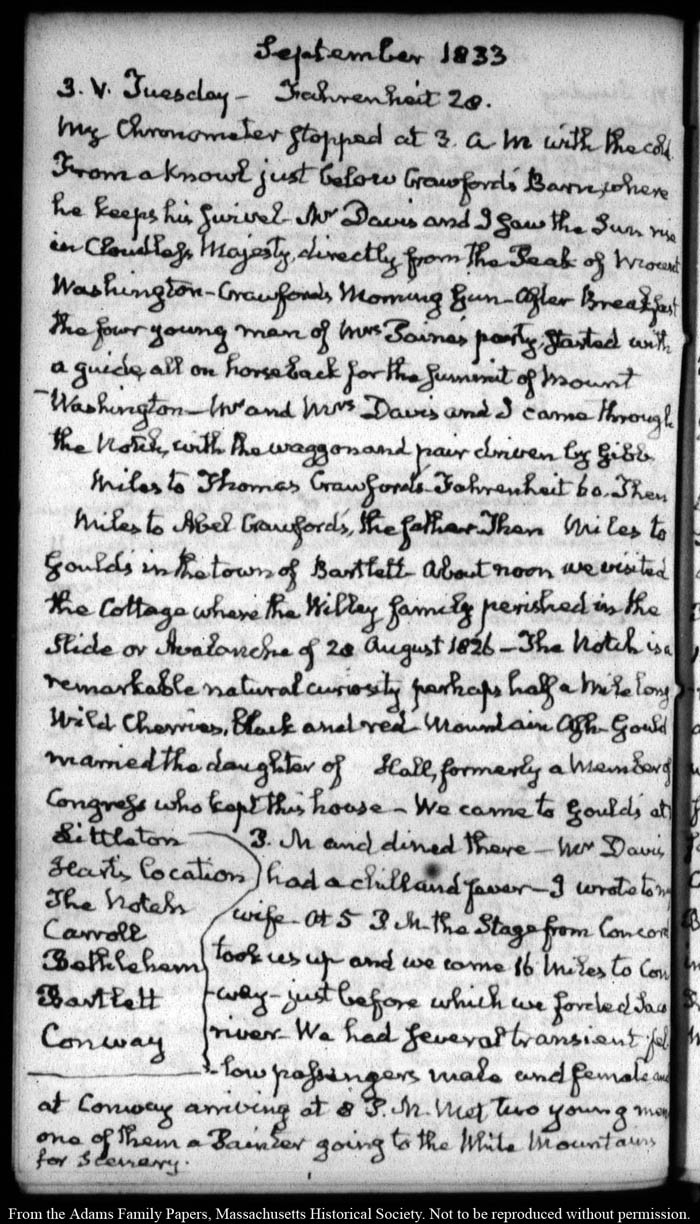 September 1833
3. V. Tuesday - Fahrenheit 28.
My Chronometer stopped at 3. A M with the cold.
From a knowl just below Crawford's Barn, where
he keeps his swivel Mr Davis and I saw the Sun rise
in Cloudless Majesty, directly from the Peak of Mount
Washington - Crawford's Morning Gun - After Breakfast
the four young men of Mrs Paine's party, started with
a guide all on horseback for the summit of Mount
Washington - Mr and Mrs Davis and I came through
the Notch, with the waggon and pair driven by Gibb
Miles to Thomas Crawford's - Fahrenheit 60. Then
Miles to Abel Crawford's, the father. Then Miles to
Goulds in the town of Bartlett. About noon we visited
the Cottage where the Willey family perished in the
Slide or Avalanche of 28 August 1826 - The Notch is a
remarkable natural curiosity perhaps half a Mile long
Wild Cherries, black and red Mountain Ash - Gould
married the daughter of Hall, formerly a Member of
Congress who kept this house - We came to Goulds at
Littleton
Harts location
The Notch
Carroll
Bethlehem
Bartlett
Conway
3. M and dined there - Mr Davis
had a chill and fever - I wrote to my
wife - At 5 P. M. the Stage from Concord
took us up and we came 16 Miles to Con
-way - just before which we forded Saco
river - We had several transient fel
-low passengers male and female and
at Conway arriving at 8 P. M. Met two young men
one of them a Painter going to the White Mountains
for Scenery.
From the Adams Family Papers, Massachusetts Historical Society. Not to be reproduced without permission.